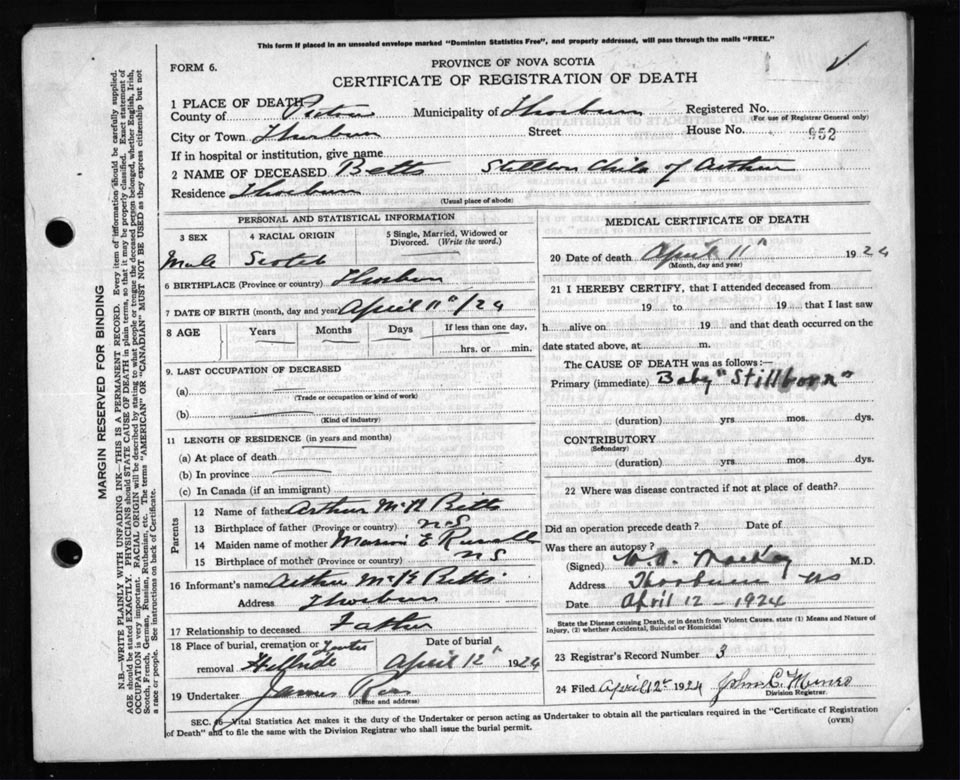 This form if placed in an unsealed envelope marked "Dominion Statistics Free", and properly addressed, will pass through the mails "FREE."
FORM 6.
PROVINCE OF NOVA SCOTIA
CERTIFICATE OF REGISTRATION OF DEATH
1 PLACE OF DEATH
County of Pictou Municipality of Thorburn Registered No.
(For use of Registrar General only)
City or Town Thorburn Street House No. 952
If in hospital or institution, give name
2 NAME OF DECEASED Betts Stillborn Child of Arthur
Residence Thorburn
(Usual place of abode)
PERSONAL AND STATISTICAL INFORMATION
3 SEX 4 RACIAL ORIGIN 5 Single, Married, Widowed or Divorced. (Write the word.)
Male Scotch
6 BIRTHPLACE (Province or country) Thorburn
7 DATE OF BIRTH (month, day and year) April 11"/24
8 AGE Years Months Days If less than one day,
hrs. or min.
9. LAST OCCUPATION OF DECEASED
(a)
(Trade or occupation or kind of work)
(b)
(Kind of industry)
11 LENGTH OF RESIDENCE (in years and months)
(a) At place of death
(b) In province
(c) In Canada (if an immigrant)
Parents
12 Name of father Arthur Betts
13 Birthplace of father (Province or country) NS
14 Maiden name of mother E Russell
15 Birthplace of mother (Province or country) NS
16 Informant's name Arthur Betts
Address Thorburn
17 Relationship to deceased Father
18 Place of burial, cremation or removal Hillside
Date of burial April 12" 1924
19 Undertaker James
(Name and address)
MEDICAL CERTIFICATE OF DEATH
20 Date of death April 11" 1924
(Month, day and year)
21 I HEREBY CERTIFY, that I attended deceased from
19 to 19 that I last saw
h alive on 19 and that death occurred on the
date stated above, at m.
The CAUSE OF DEATH was as follows:—
Primary (immediate) Baby "Stillborn"
(duration) yrs mos. dys.
CONTRIBUTORY
(Secondary)
(duration) yrs. mos. dys.
22 Where was disease contracted if not at place of death?
Did an operation precede death? Date of
Was there an autopsy?
(Signed) M.D.
Address Thorburn NS
Date April 12 - 1924
State the Disease causing Death, or in death from Violent Causes, state (1) Means and Nature of
Injury, (2) whether Accidental, Suicidal or Homicidal
23 Registrar's Record Number 3
24 Filed April 12" 1924 John C. Munro
Division Registrar.
SEC. 16—Vital Statistics Act makes it the duty of the Undertaker or person acting as Undertaker to obtain all the particulars required in the "Certificate of Registration
of Death" and to file the same with the Division Registrar who shall issue the burial permit. (OVER)
MARGIN RESERVED FOR BINDING
N.B.—WRITE PLAINLY WITH UNFADING INK—THIS IS A PERMANENT RECORD. Every item of information should be carefully supplied.
AGE should be stated EXACTLY. PHYSICIANS should STATE CAUSE OF DEATH in plain terms, so that it may be properly classified. Exact statement of
OCCUPATION is very important. RACIAL ORIGIN will be described by stating to what people or tongue the deceased person belonged, whether English, Irish,
Scotch, French, German, Russian, Ruthenian, etc. The terms "AMERICAN" OR "CANADIAN" MUST NOT BE USED as they express citizenship but not
a race or people. See instructions on back of Certificate.